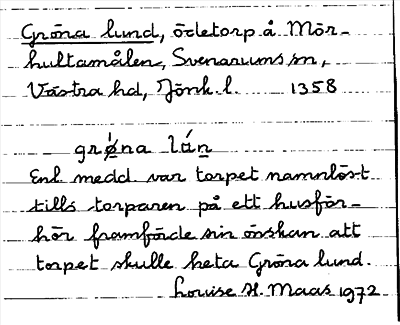 Gröna lund, ödetorp å Mör-
hultamålen, Svenarums sn,
Västra hd, Jönk. l. 1358
grø̀na lún
Enl. medd. var torpet namnlöst
tills torparen på ett husför-
hör framförde sin önskan att
torpet skulle heta Gröna lund.
Louise H. Maas 1972